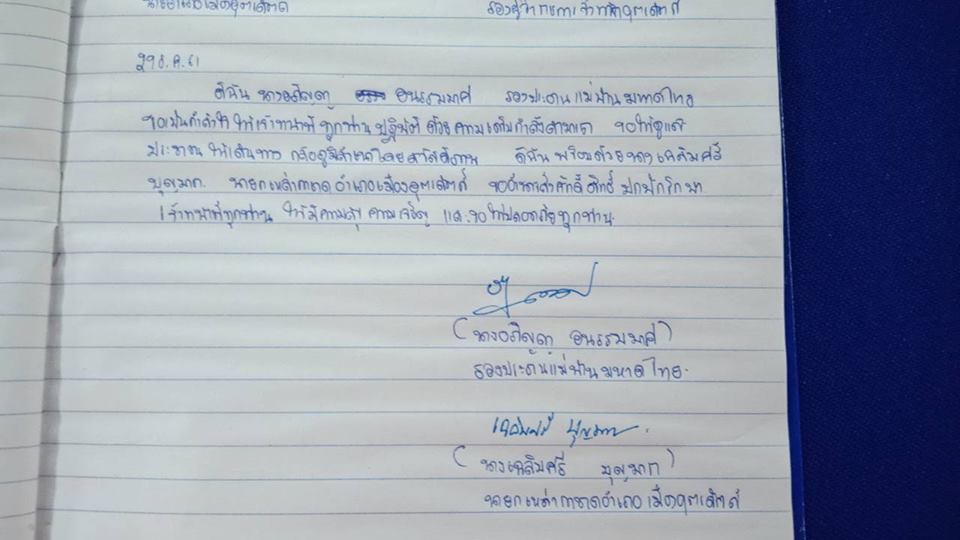 นายอำเภอเมืองอุตรดิตถ์
รองผู้ว่าราชการจังหวัดอุตรดิตถ์
29 ธ.ค. 61
ดิฉัน รองประธานแม่บ้านมหาดไทย
ขอเป็นกำลังใจ ให้เจ้าหน้าที่ ทุกท่าน ปฏิบัติ ด้วย ความเต็มกำลังความสามารถ ขอให้ดูแล
ประชาชน ให้เดินทาง กลับภูมิลำเนาโดยสวัสดิภาพ ดิฉัน พร้อมด้วยนางเฉลิมศรี
บุญมาก นายกเหล่ากาชาดอำเภอเมืองอุตรดิตถ์ ขออำนาจสิ่งศักดิ์สิทธิ์ ปกปักรักษา
เจ้าหน้าที่ทุกท่าน ให้มีความสุข ความเจริญ และขอให้ปลอดภัยทุกท่าน
รองประธานแม่บ้านมหาดไทย
เฉลิมศรี บุญมาก
(นางเฉลิมศรี บุญมาก)
นายกเหล่ากาชาดอำเภอเมืองอุตรดิตถ์